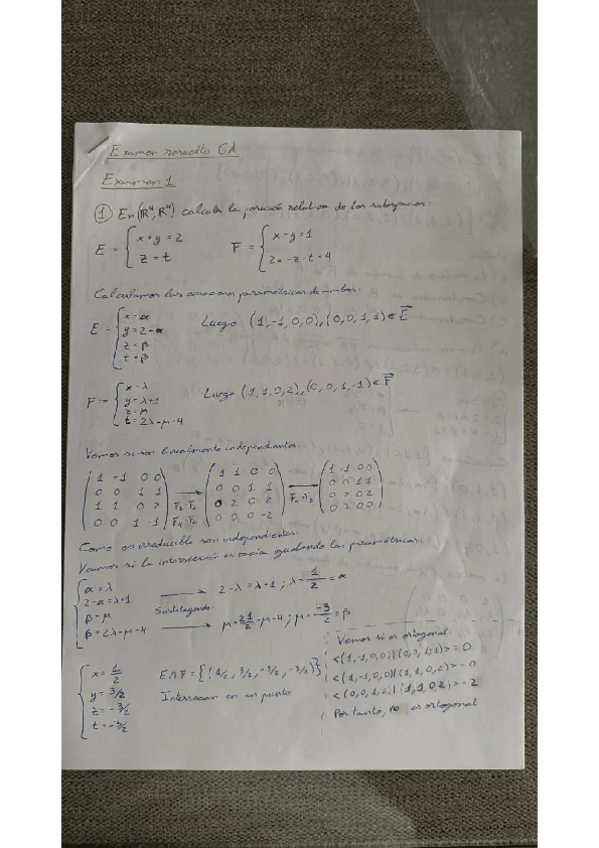 Examen resuelto GA
Examen 1
① En (ℝ⁴, ℝ⁴) calcula la posición relativa de los subespacios:
E := { x+y=2
z=t
F := { x-y=1
2x-z-t=4
Calculamos las ecuaciones paramétricas de ambos:
E := { x=α
y=2-α
z=β
t=β
Luego (1,-1,0,0),(0,0,1,1) ∈ E⃗
F := { x=λ
y=λ+1
z=μ
t=2λ-μ-4
Luego (1,1,0,2),(0,0,1,-1) ∈ F⃗
Veamos si son linealmente independientes:
( 1 -1 0 0
0 0 1 1
1 1 0 2
0 0 1 -1 )
( 1 1 0 0
0 0 1 1
0 2 0 2
0 0 0 -2 )
( 1 -1 0 0
0 0 1 1
0 2 0 2
0 2 0 0 )
Como es irreducible son independientes.
Veamos si la intersección es vacía igualando las paramétricas:
{ α=λ
2-α=λ+1
β=μ
β=2λ-μ-4
Sustituyendo:
→ 2-λ=λ+1 ; λ=1/2=α
→ μ=2 1/2-μ-4 ; μ=-3/2=β
{ x=1/2
y=3/2
z=-3/2
t=-3/2
E∩F={(1/2, 3/2, -3/2, -3/2)}
Intersecan en un punto
Veamos si es ortogonal:
<(1,-1,0,0)|(0,0,1,1)>=0
<(1,-1,0,0)|(1,1,0,2)>=0
<(0,0,1,1)|(1,1,0,2)>=2
Por tanto, no es ortogonal